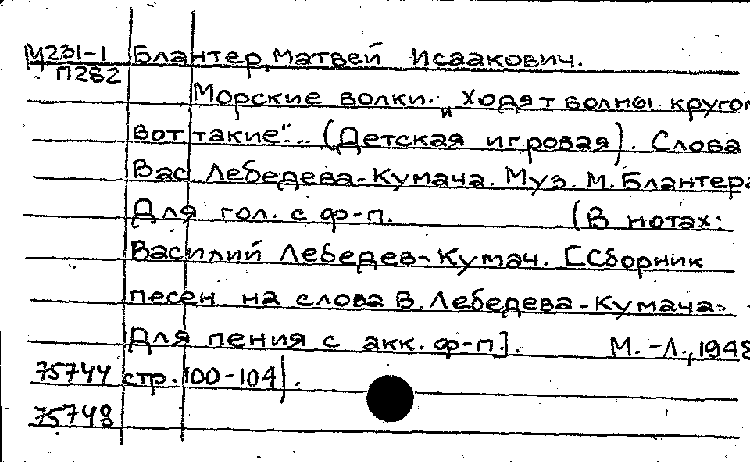 М231-1 Блантер, Матвей Исаакович.
П282
Морские волки. „Ходят волны кругом
вот такие"... (Детская игровая). Слова
Вас. Лебедева-Кумача. Муз. М. Блантера
Для гол. с ф-п. (В нотах:
Василий Лебедев-Кумач. [Сборник
песен на слова В. Лебедева-Кумача.
Для пения с акк. ф-п]. М.-Л., 1948
75744 стр. 100-104).
75748